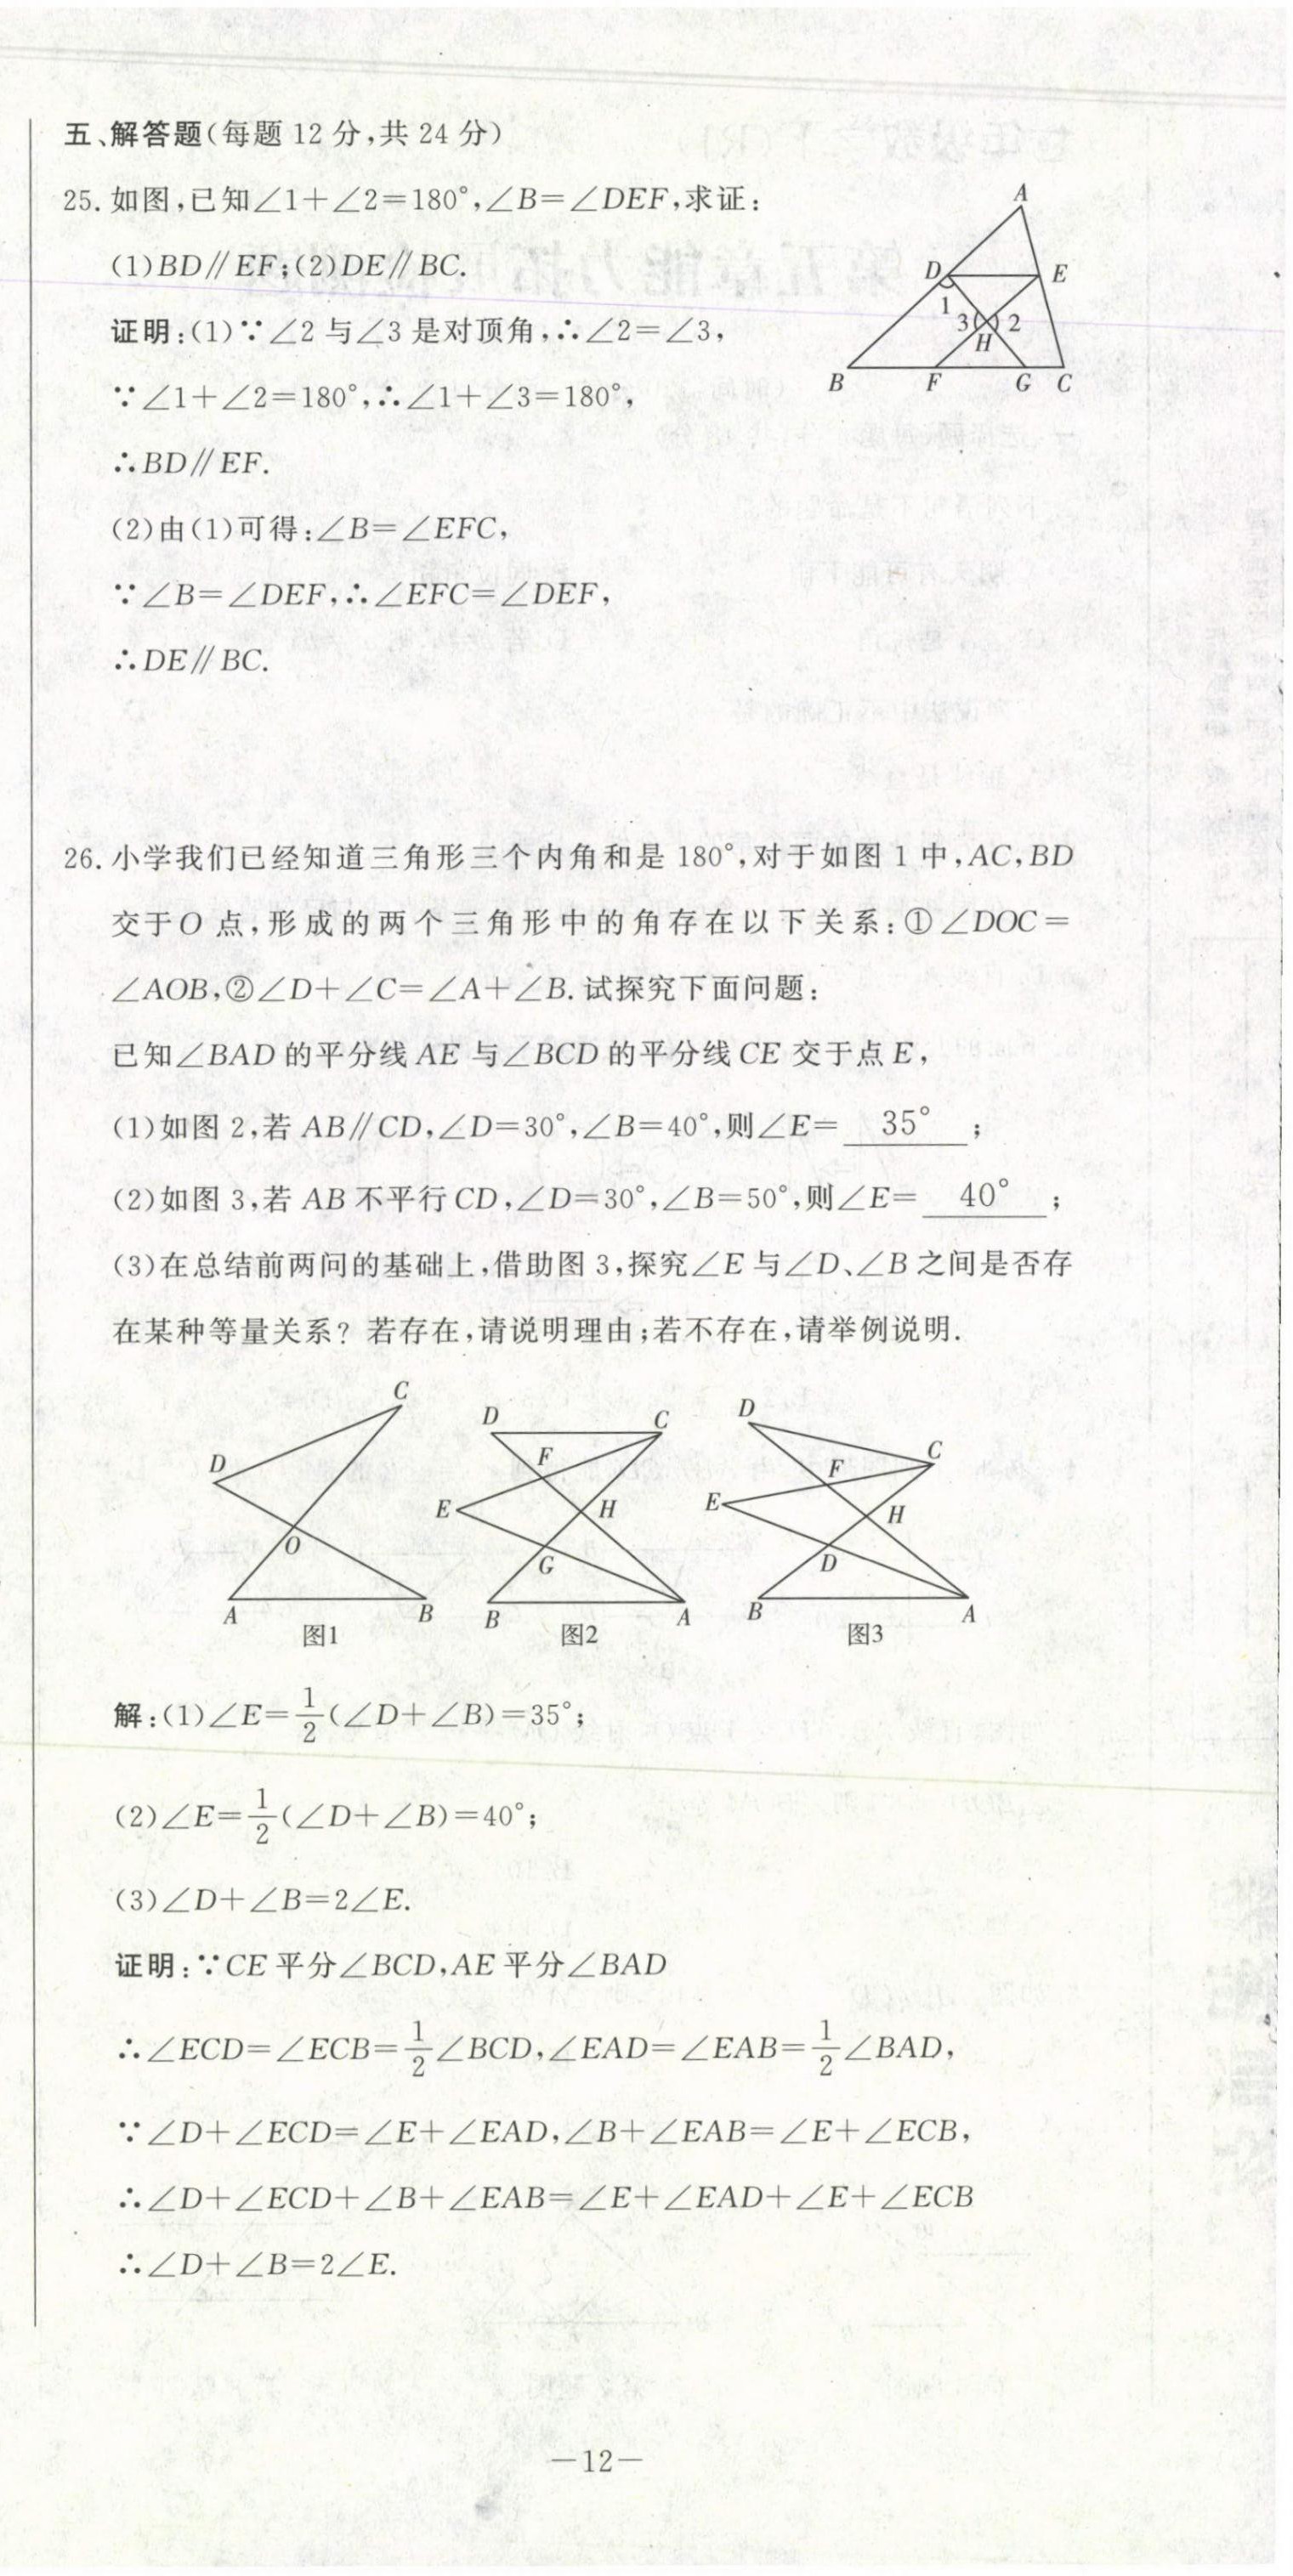 五、解答题(每题 12 分,共 24 分)
25. 如图,已知∠1+∠2=180°,∠B=∠DEF,求证:
(1)BD∥EF;(2)DE∥BC.
证明:(1)∵∠2 与∠3 是对顶角,∴∠2=∠3,
∵∠1+∠2=180°,∴∠1+∠3=180°,
∴BD∥EF.
(2)由(1)可得:∠B=∠EFC,
∵∠B=∠DEF,∴∠EFC=∠DEF,
∴DE∥BC.
A
D E
1 3 2
H
B F G C
26. 小学我们已经知道三角形三个内角和是 180°,对于如图 1 中,AC,BD
交于O 点,形成的两个三角形中的角存在以下关系:①∠DOC=
∠AOB,②∠D+∠C=∠A+∠B.试探究下面问题:
已知∠BAD 的平分线 AE 与∠BCD 的平分线 CE 交于点 E,
(1)如图 2,若 AB∥CD,∠D=30°,∠B=40°,则∠E= 35° ;
(2)如图 3,若 AB 不平行 CD,∠D=30°,∠B=50°,则∠E= 40° ;
(3)在总结前两问的基础上,借助图 3,探究∠E 与∠D、∠B 之间是否存
在某种等量关系? 若存在,请说明理由;若不存在,请举例说明.
C
D
O
A B
图1
D C
F
E H
G
B A
图2
D
C
F
E H
D
B A
图3
解:(1)∠E=1/2(∠D+∠B)=35°;
(2)∠E=1/2(∠D+∠B)=40°;
(3)∠D+∠B=2∠E.
证明:∵CE 平分∠BCD,AE 平分∠BAD
∴∠ECD=∠ECB=1/2∠BCD,∠EAD=∠EAB=1/2∠BAD,
∵∠D+∠ECD=∠E+∠EAD,∠B+∠EAB=∠E+∠ECB,
∴∠D+∠ECD+∠B+∠EAB=∠E+∠EAD+∠E+∠ECB
∴∠D+∠B=2∠E.
—12—